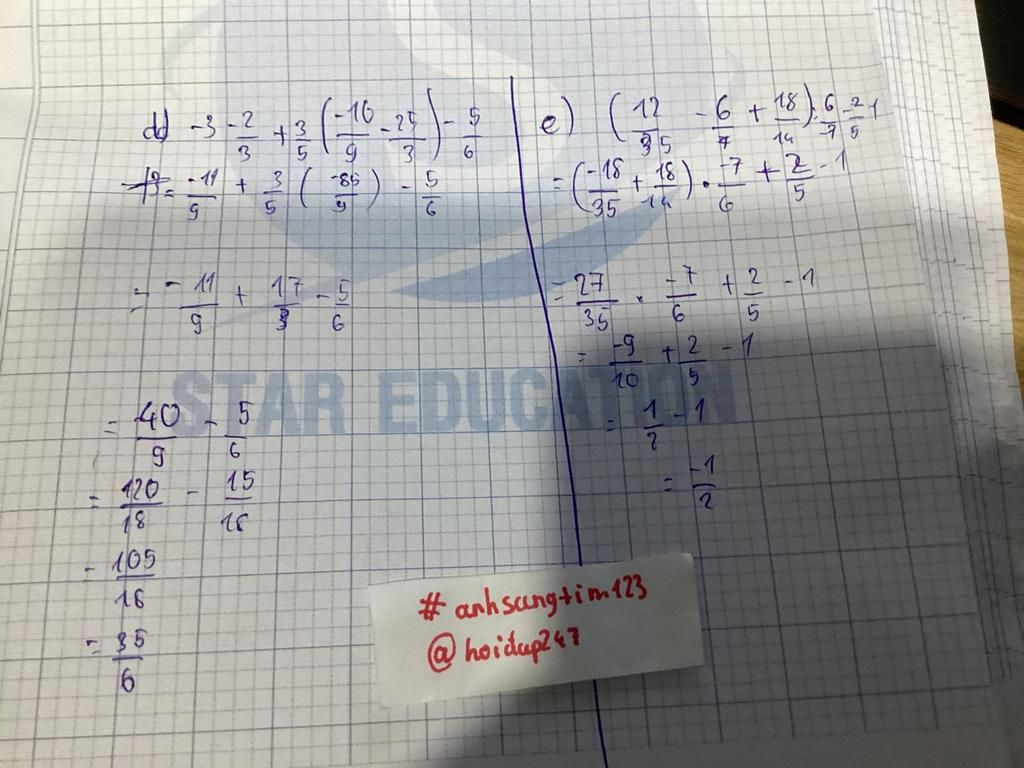 d) -3 -2/3 + 3/5 (-16/9 - 25/3) - 5/6
= -11/9 + 3/5 (-85/9) - 5/6
= -11/9 + 17/3 - 5/6
= 40/9 - 5/6
= 120/18 - 15/18
= 105/18
= 35/6
e) (12/35 - 6/7 + 18/14) : 6/-7 - -2/5 - 1
= (-18/35 + 18/14) . -7/6 + 2/5 - 1
= 27/35 . -7/6 + 2/5 - 1
= -9/10 + 2/5 - 1
= 1/2 - 1
= -1/2
STAR EDUCATION
# anhsangtim123
@hoidap247